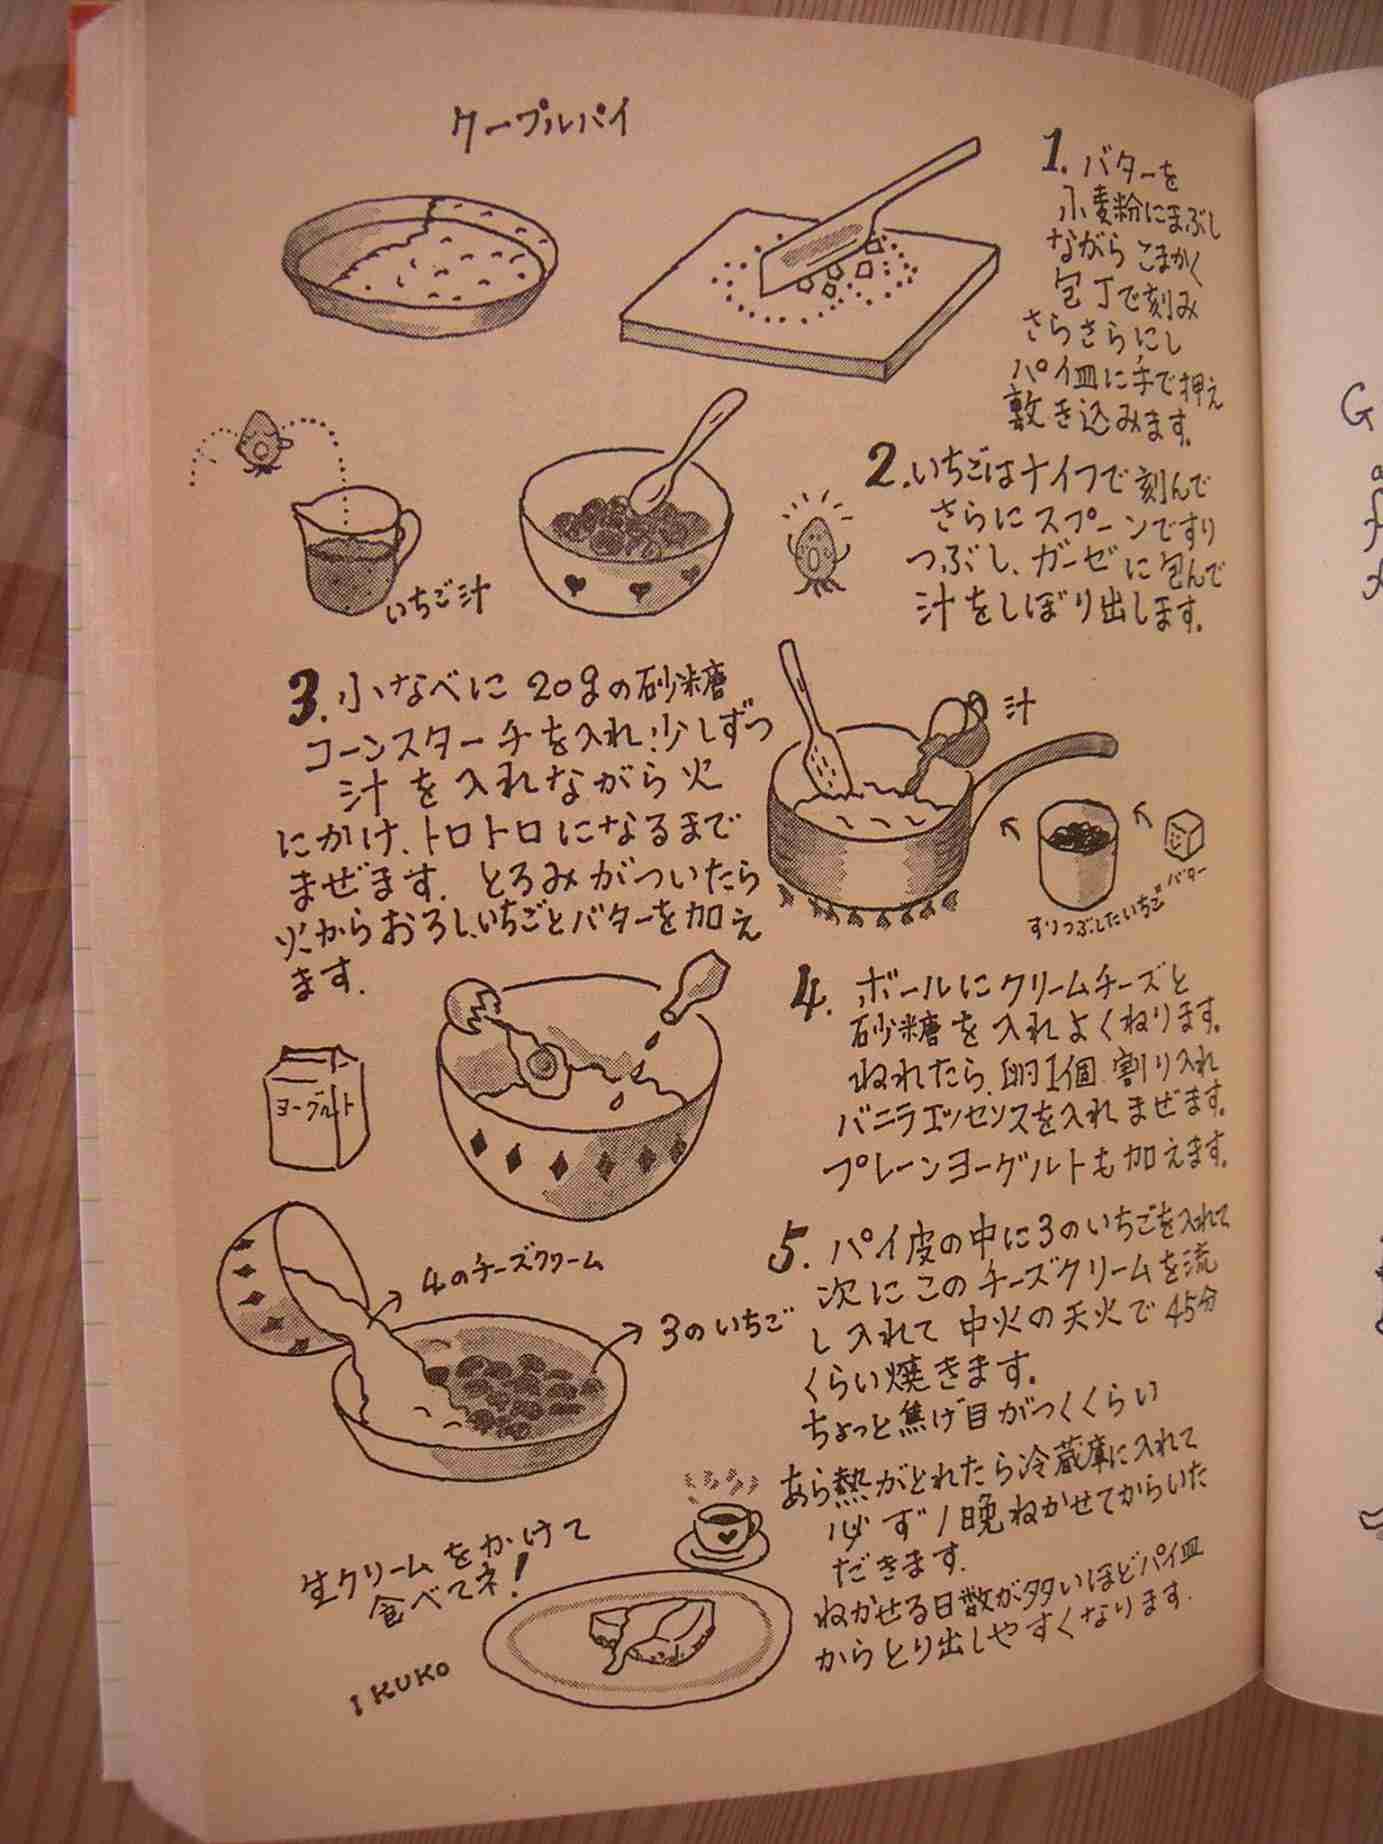 クープルパイ
1. バターを
小麦粉にまぶし
ながら こまかく
包丁で刻み
さらさらにし
パイ皿に手で押え
敷き込みます。
2. いちごはナイフで刻んで
さらにスプーンですり
つぶし、ガーゼに包んで
汁をしぼり出します。
いちご汁
3. 小なべに 20gの砂糖
コーンスターチを入れ、少しずつ
汁を入れながら火
にかけ、トロトロになるまで
まぜます。とろみがついたら
火からおろし、いちごとバターを加え
ます。
汁
すりつぶしたいちご
バター
4. ボールにクリームチーズと
砂糖を入れよくねります。
ねれたら、卵1個 割り入れ
バニラエッセンスを入れまぜます。
プレーンヨーグルトも加えます。
ヨーグルト
5. パイ皮の中に3のいちごを入れて
次にこのチーズクリームを流
し入れて 中火の天火で45分
くらい焼きます。
ちょっと焦げ目がつくくらい
あら熱がとれたら冷蔵庫に入れて
必ず1晩ねかせてからいた
だきます。
ねかせる日数が多いほどパイ皿
からとり出しやすくなります。
4のチーズクリーム
3のいちご
生クリームをかけて
食べてネ!
IKUKO
G